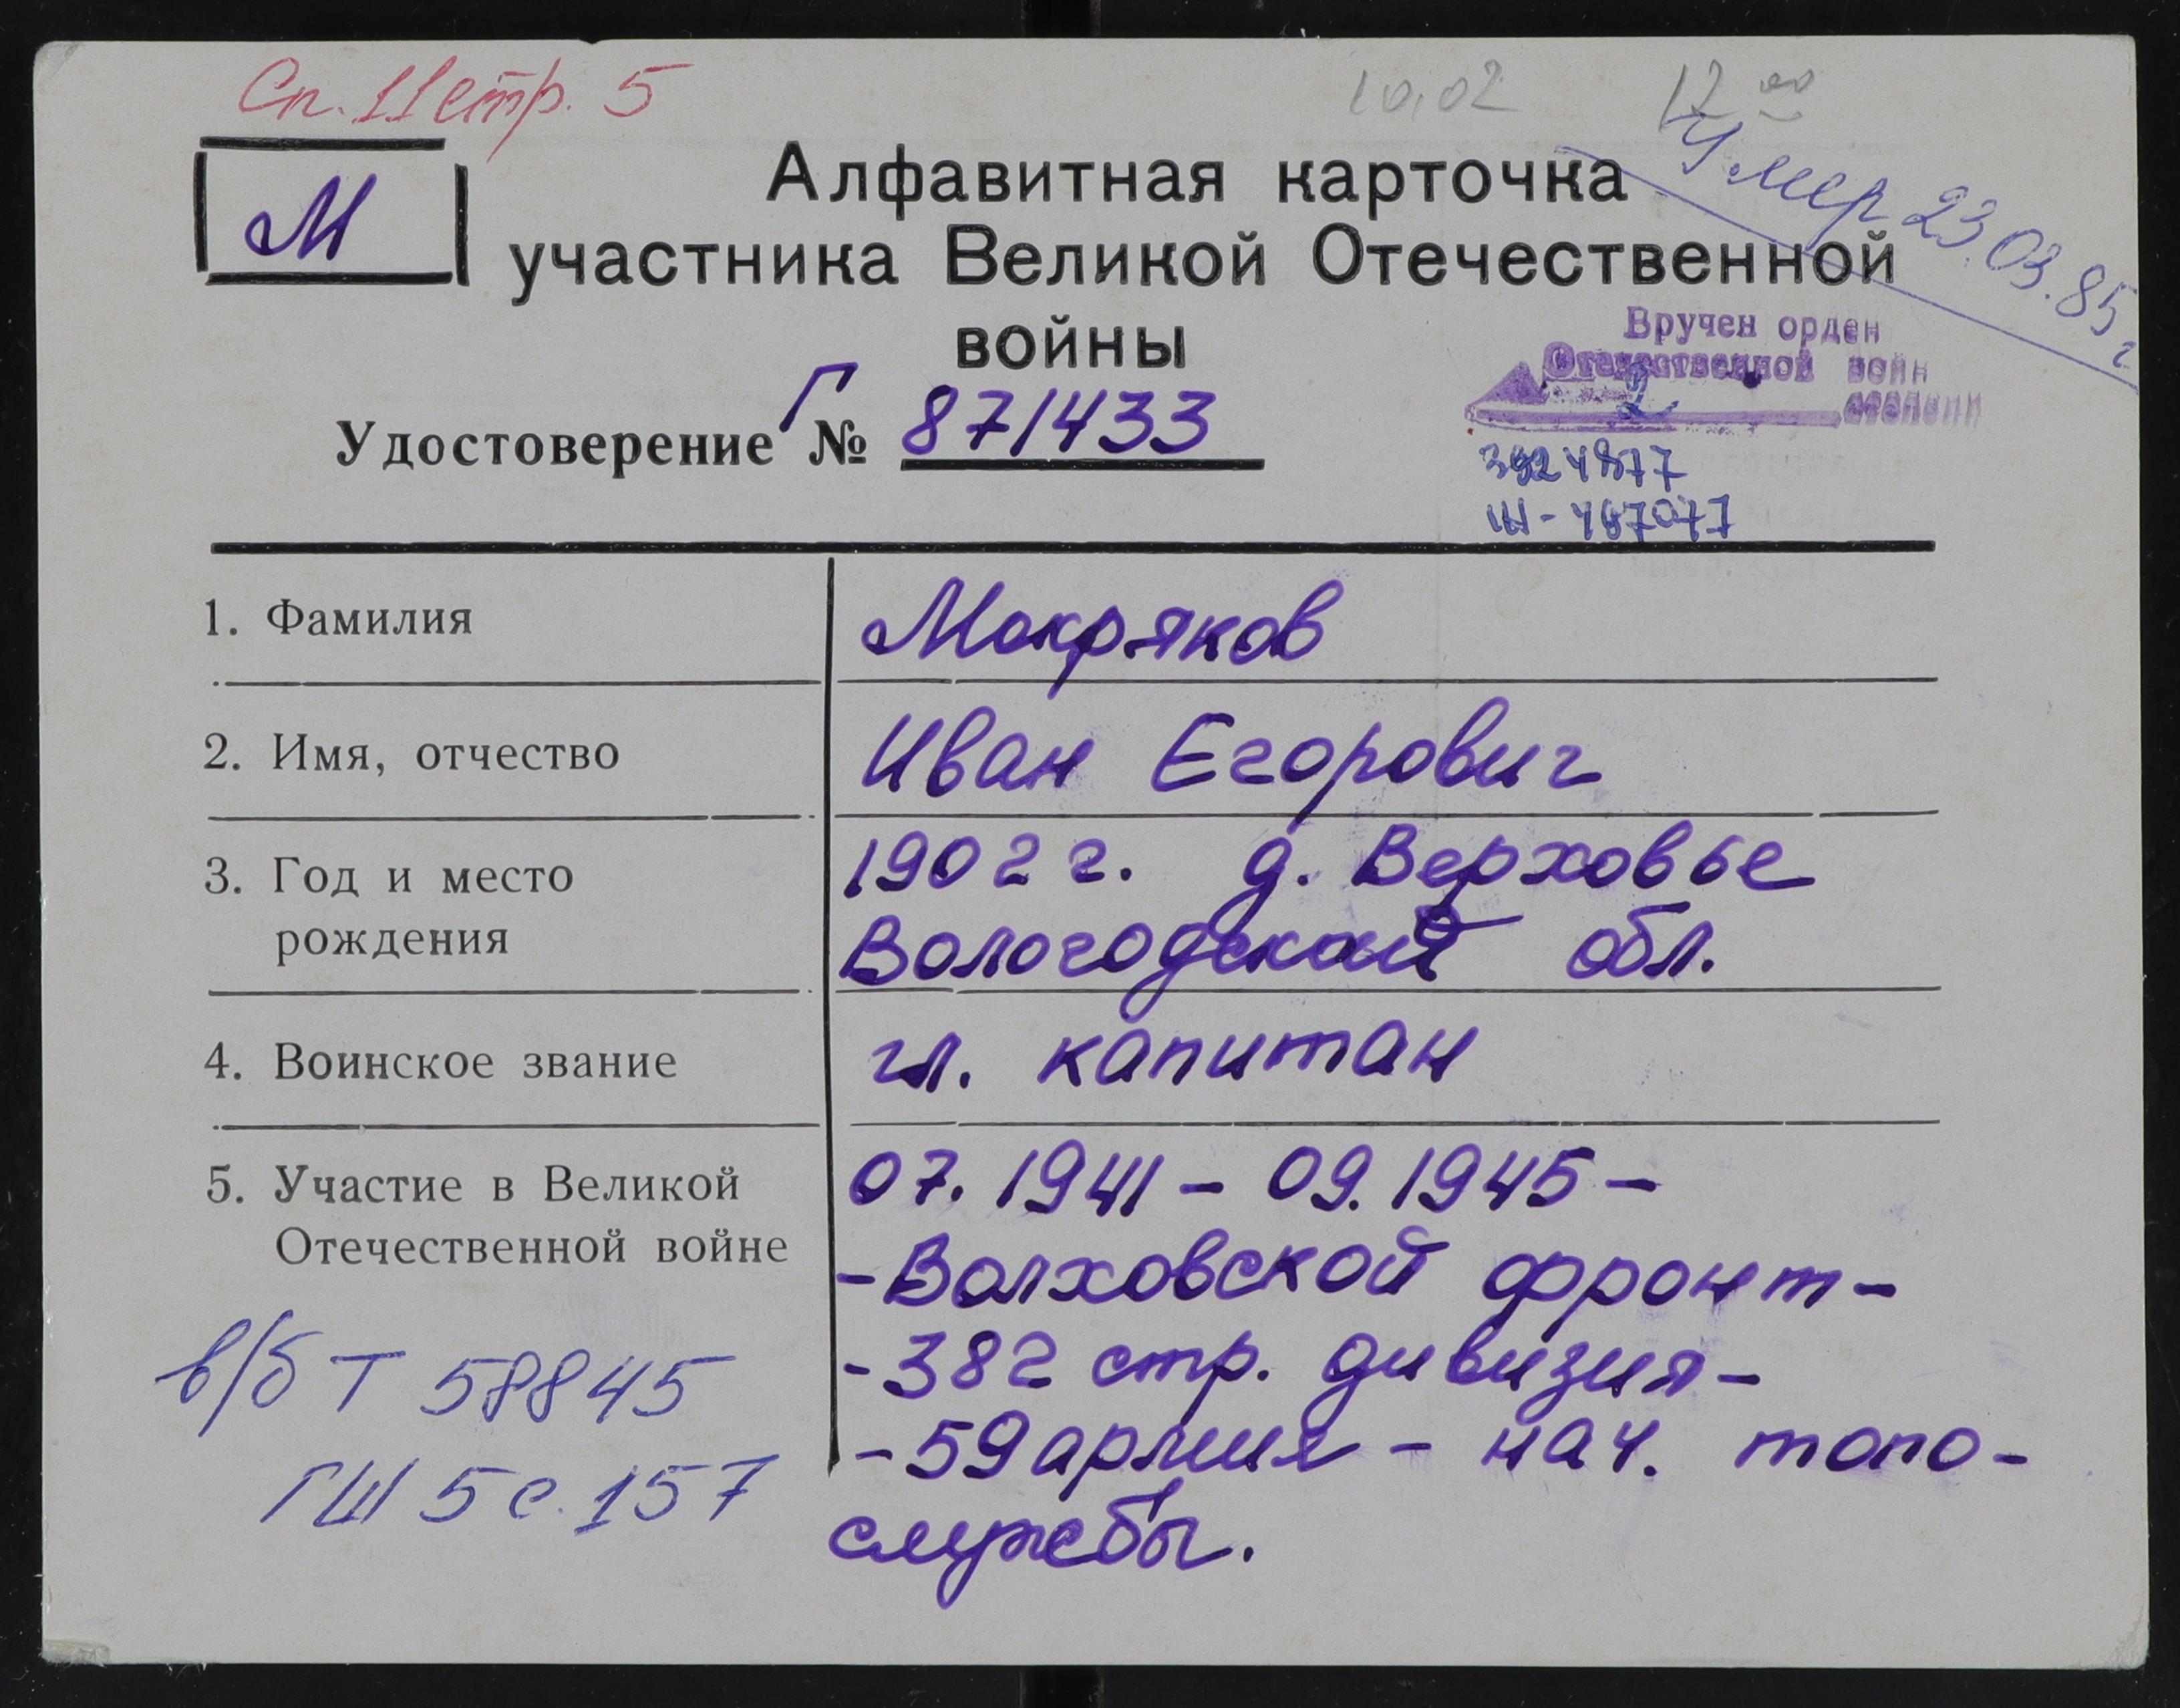 Сп. 11 стр. 5
10.02 12 00
Умер 23.03.85 г
М
Алфавитная карточка
участника Великой Отечественной
войны
Вручен орден
Отечественной войн
2 степени
Удостоверение Г № 871433
1. Фамилия Мокряков
2. Имя, отчество Иван Егорович
3. Год и место 1902 г. д. Верховье
рождения Вологодской обл.
4. Воинское звание гл. капитан
5. Участие в Великой 07.1941 – 09.1945 –
Отечественной войне – Волховской фронт –
– 382 стр. дивизия –
в/б Т 58845
– 59 армия – нач. топо-
ГШ 5 с. 157
службы.